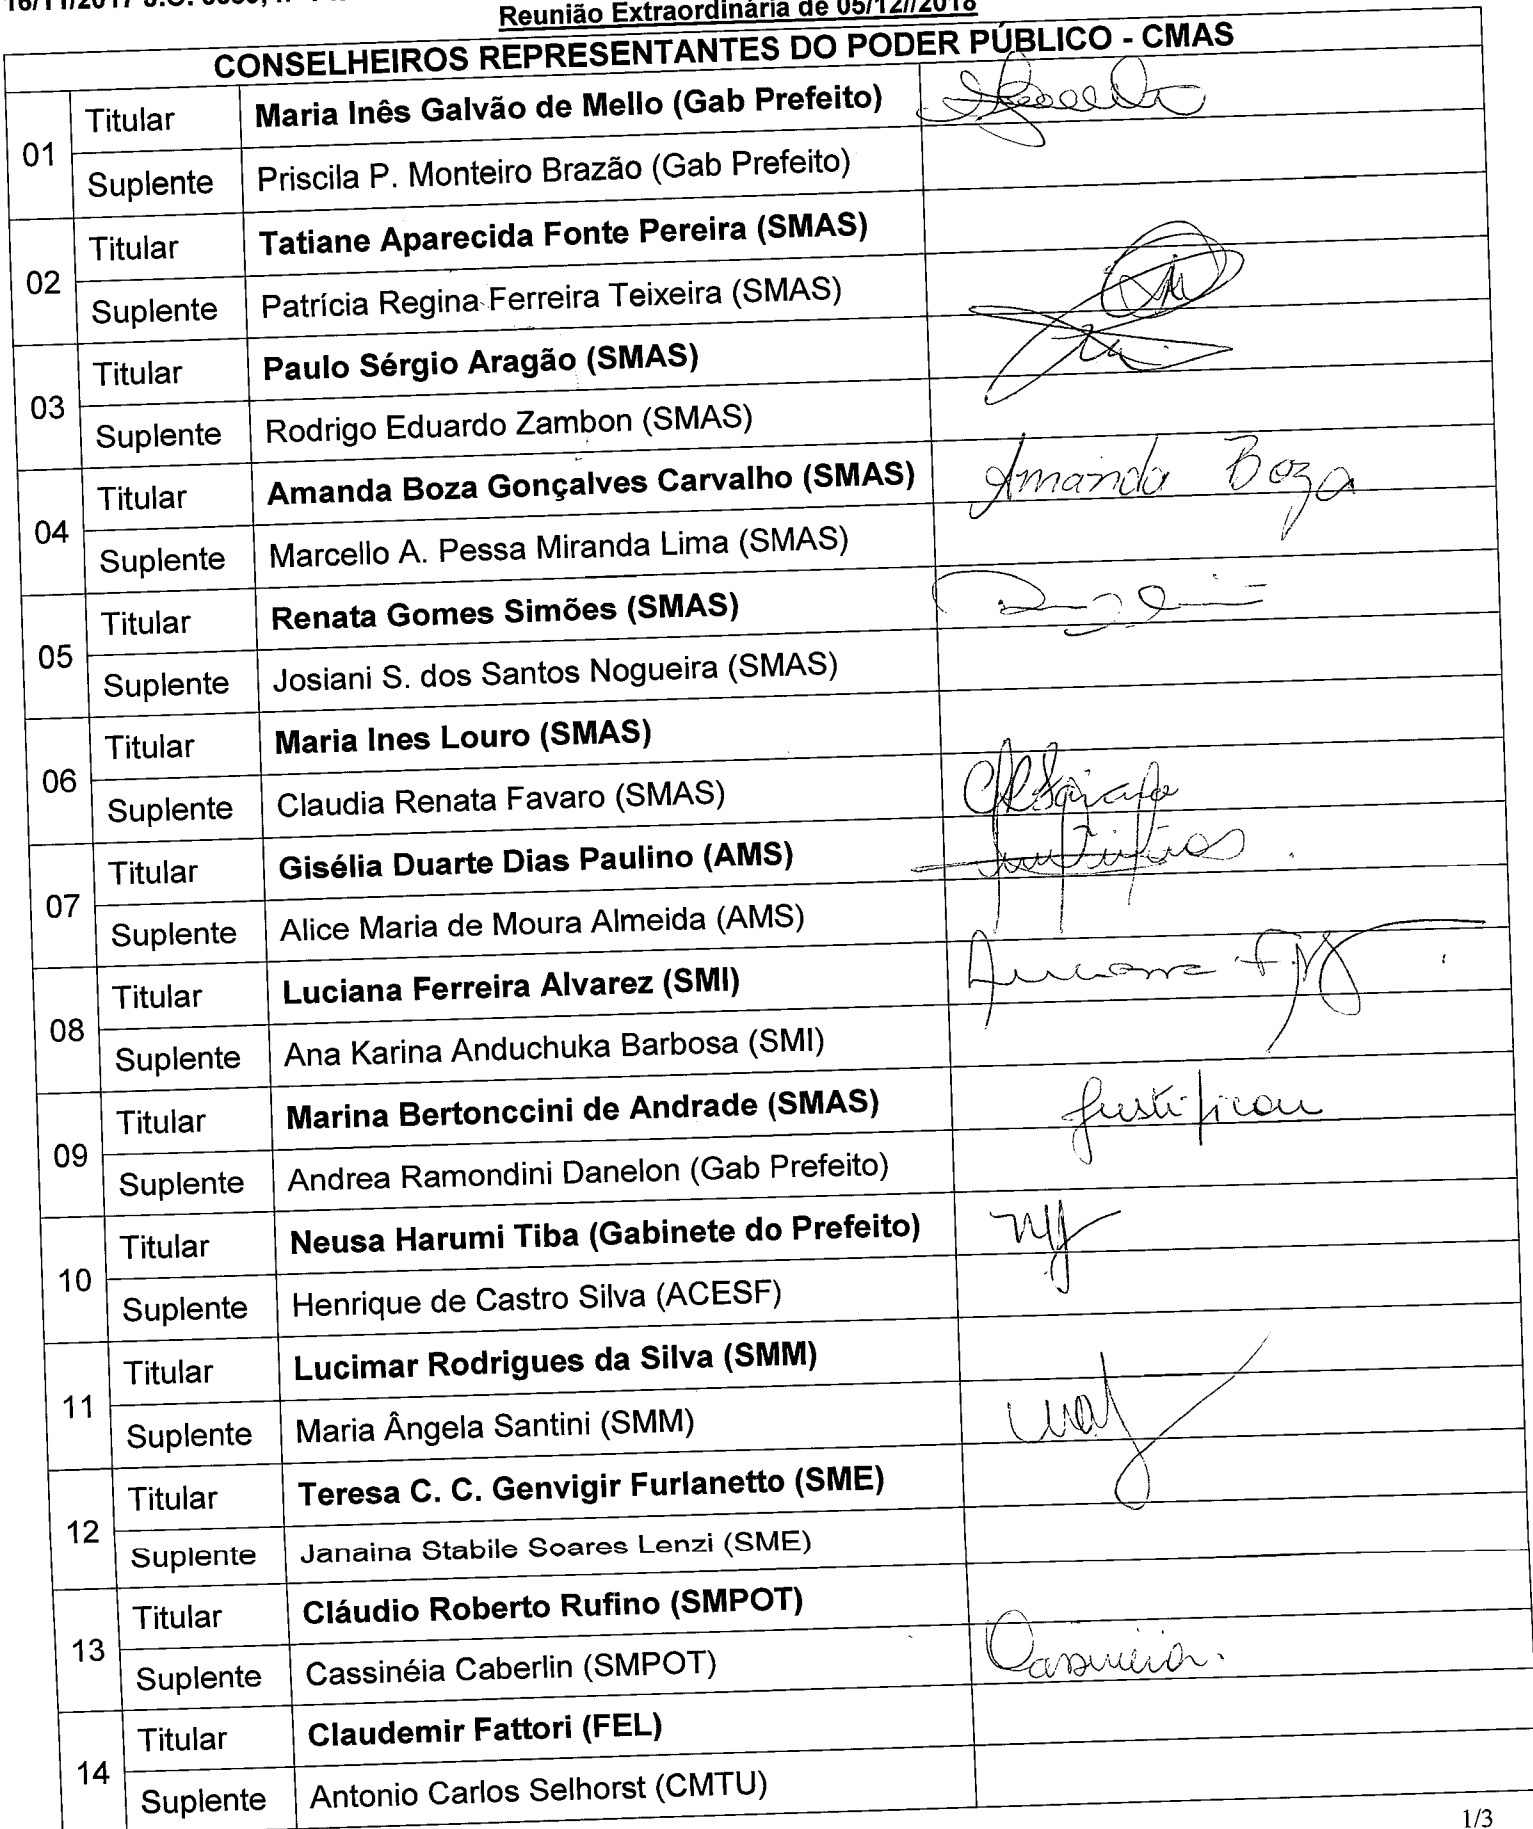 Reunião Extraordinária de 05/12//2018
CONSELHEIROS REPRESENTANTES DO PODER PÚBLICO - CMAS
01 Titular Maria Inês Galvão de Mello (Gab Prefeito)
Suplente Priscila P. Monteiro Brazão (Gab Prefeito)
02 Titular Tatiane Aparecida Fonte Pereira (SMAS)
Suplente Patrícia Regina Ferreira Teixeira (SMAS)
03 Titular Paulo Sérgio Aragão (SMAS)
Suplente Rodrigo Eduardo Zambon (SMAS)
04 Titular Amanda Boza Gonçalves Carvalho (SMAS) Amanda Boza
Suplente Marcello A. Pessa Miranda Lima (SMAS)
05 Titular Renata Gomes Simões (SMAS)
Suplente Josiani S. dos Santos Nogueira (SMAS)
06 Titular Maria Ines Louro (SMAS)
Suplente Claudia Renata Favaro (SMAS)
07 Titular Gisélia Duarte Dias Paulino (AMS)
Suplente Alice Maria de Moura Almeida (AMS)
08 Titular Luciana Ferreira Alvarez (SMI) Luciana
Suplente Ana Karina Anduchuka Barbosa (SMI)
09 Titular Marina Bertonccini de Andrade (SMAS) Justificou
Suplente Andrea Ramondini Danelon (Gab Prefeito)
10 Titular Neusa Harumi Tiba (Gabinete do Prefeito)
Suplente Henrique de Castro Silva (ACESF)
11 Titular Lucimar Rodrigues da Silva (SMM)
Suplente Maria Ângela Santini (SMM)
12 Titular Teresa C. C. Genvigir Furlanetto (SME)
Suplente Janaina Stabile Soares Lenzi (SME)
13 Titular Cláudio Roberto Rufino (SMPOT)
Suplente Cassinéia Caberlin (SMPOT) Cassinéia.
14 Titular Claudemir Fattori (FEL)
Suplente Antonio Carlos Selhorst (CMTU)
1/3